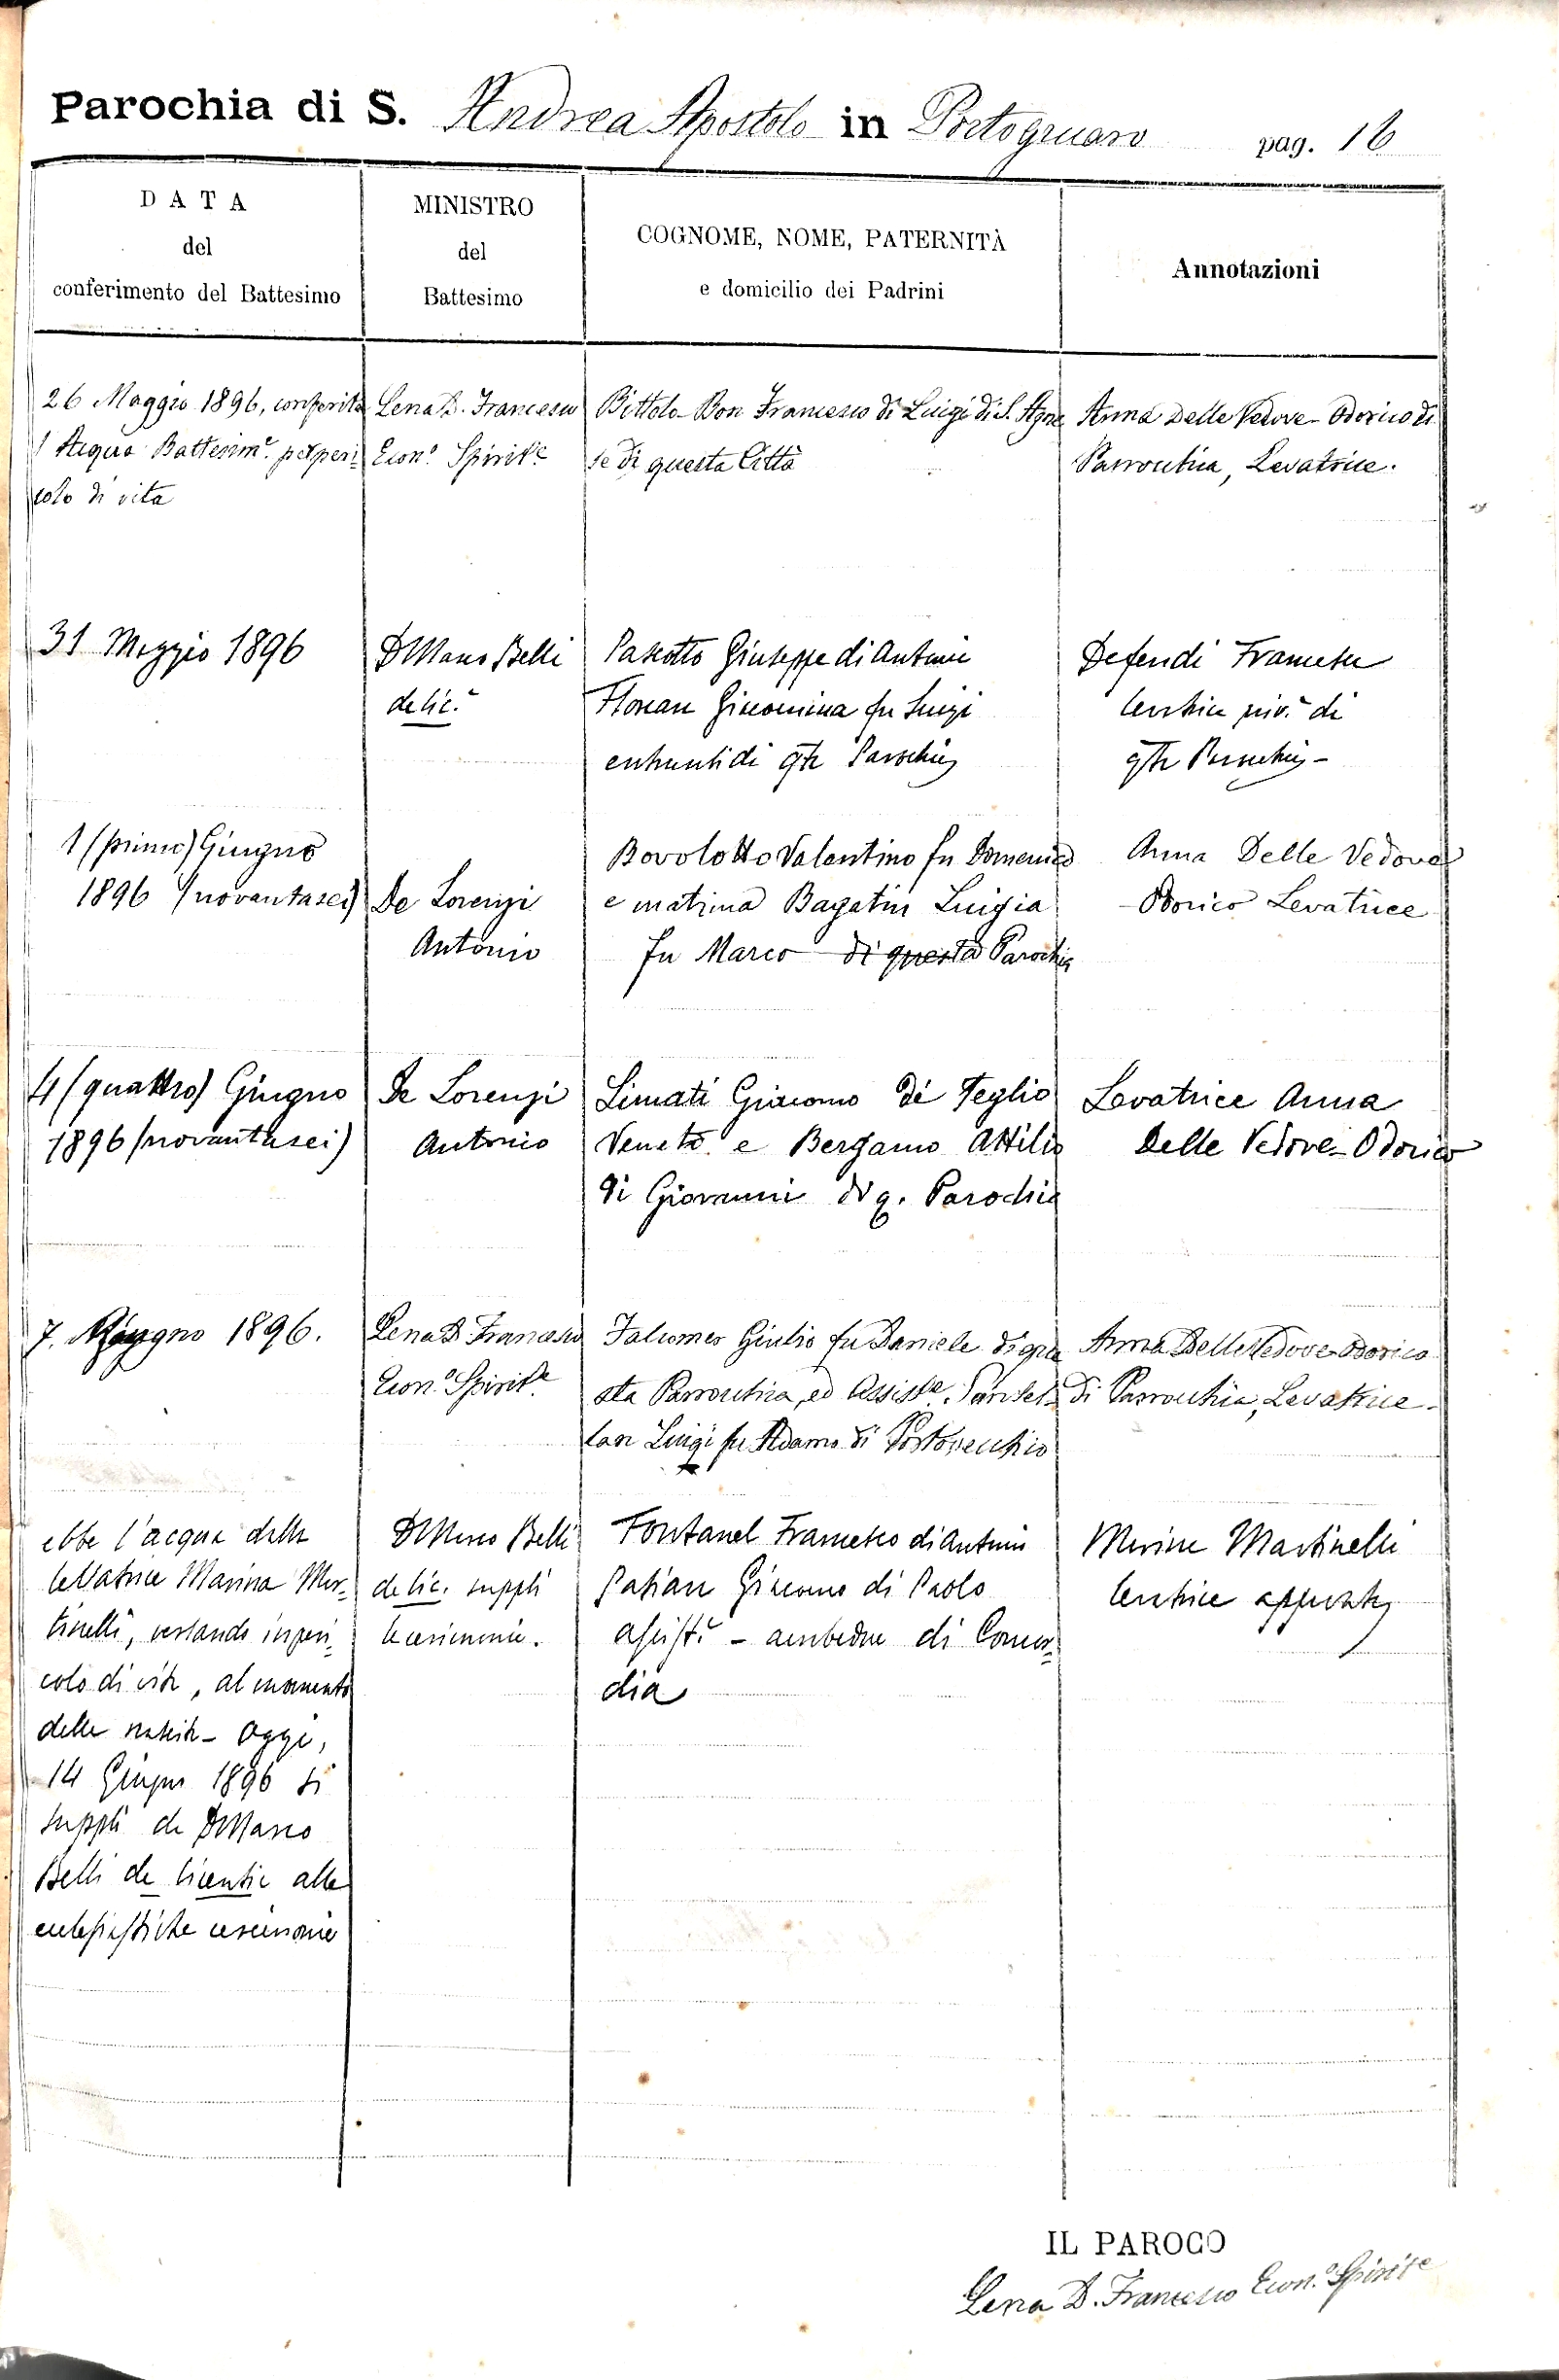 Parochia di S. Andrea Apostolo in Portogruaro pag. 16
DATA
del
conferimento del Battesimo
MINISTRO
del
Battesimo
COGNOME, NOME, PATERNITÀ
e domicilio dei Padrini
Annotazioni
26 Maggio 1896, conferita
l'Acqua Battesim.e per peri=
colo di vita
Lena D. Francesco
Econ.o Spirit.e
Bittolo Bon Francesco di Luigi di S. Agne
se di questa Città
Anna Delle Vedove-Odorico di
Parrocchia, Levatrice.
31 Maggio 1896
D Marco Belli
de lic.a
Pascotto Giuseppe di Antonio
Florean Giacomina fu Luigi
entrambi di qta Parochia
Defendi Francesca
levatrice di
qta Parochia-
1 (primo) Giugno
1896 (novantasei)
De Lorenzi
Antonio
Bovolotto Valentino fu Domenico
e matrina Bagatin Luigia
fu Marco di questa Parochia
Anna Delle Vedove
Odorico Levatrice
4 (quattro) Giugno
1896 (novantasei)
De Lorenzi
Antonio
Limati Giacomo di Teglio
Veneto e Bergamo Attilio
di Giovanni di q. Parochia
Levatrice Anna
Delle Vedove-Odorico
7. Giugno 1896.
Lena D. Francesco
Econ.o Spirit.e
Falcomer Giulio fu Daniele di que
sta Parrocchia, ed Assist.e
Luigi fu Adamo di Portovecchio
Anna Delle Vedove-Odorico
di Parrocchia, Levatrice.
ebbe l'acqua dalla
levatrice Marina Mar=
tinelli, versando in peri=
colo di vita, al momento
della nascita- Oggi,
14 Giugno 1896 si
supplì da D Marco
Belli de licentia alle
ecclesiastiche cerimonie
D Marco Belli
de lic. supplì
le cerimonie.
Fontanel Francesco di Antonio
Giacomo di Paolo
assistè - ambedue di Concor=
dia
Marina Martinelli
levatrice approvata
IL PAROCO
Lena D. Francesco Econ.o Spirit.e